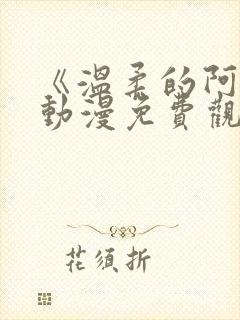 《溫柔的阿
動漫免費觀
花須折